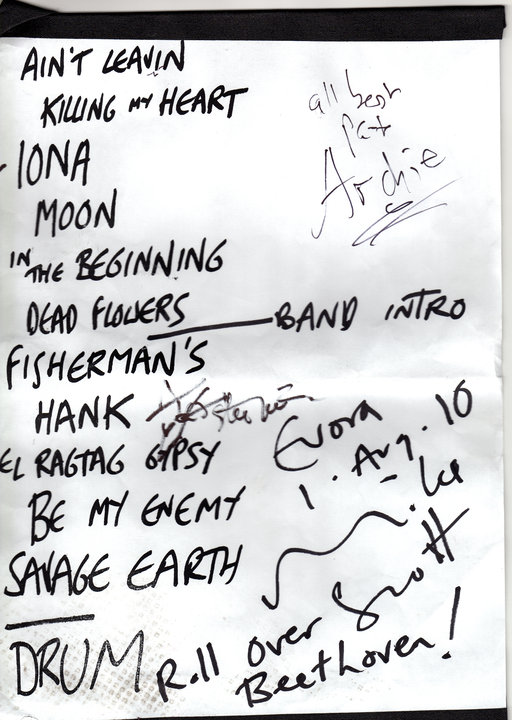 AIN'T LEAVIN
KILLING MY HEART
IONA
MOON
IN THE BEGINNING
DEAD FLOWERS BAND INTRO
FISHERMAN'S
HANK
EL RAGTAG GYPSY
BE MY ENEMY
SAVAGE EARTH
DRUM
all best
Pat
Archie
Evora
1. Aug. 10
Scott
Roll over
Beethoven!